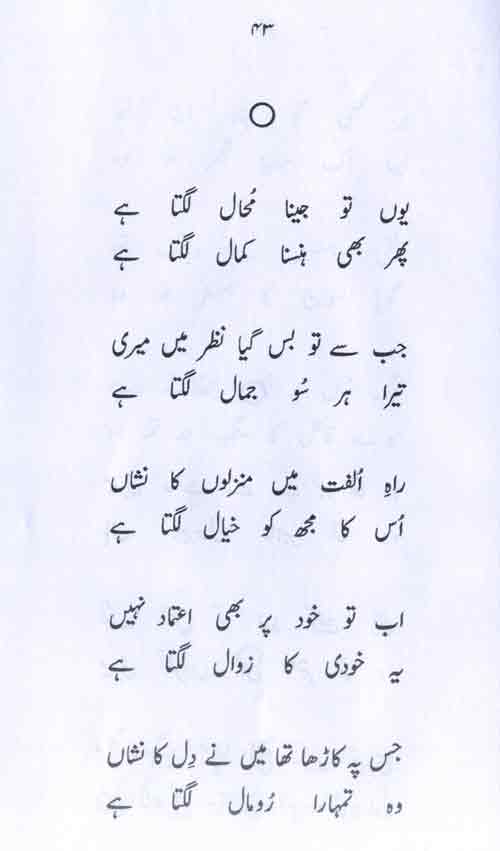 ۴۳
یوں تو جینا مُحال لگتا ہے
پھر بھی ہنسنا کمال لگتا ہے
جب سے تو بس گیا نظر میں میری
تیرا ہر سُو جمال لگتا ہے
راہِ اُلفت میں منزلوں کا نشاں
اُس کا مجھ کو خیال لگتا ہے
اب تو خود پر بھی اعتماد نہیں
یہ خودی کا زوال لگتا ہے
جس پہ کاڑھا تھا میں نے دِل کا نشاں
وہ تمہارا رُومال لگتا ہے